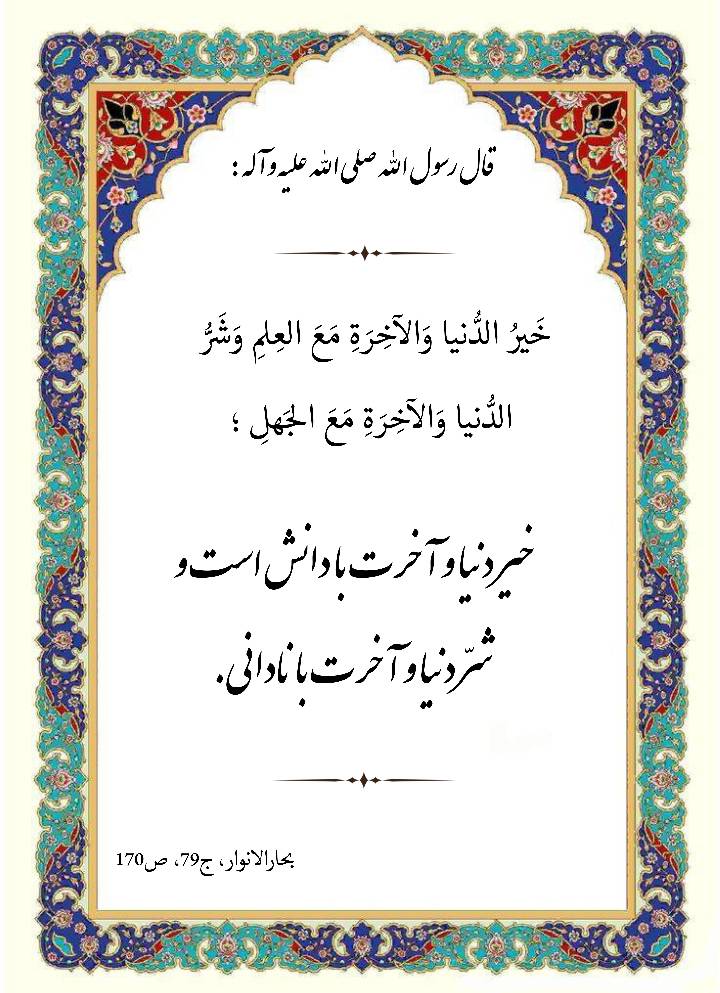 قال رسول الله صلی الله علیه وآله :
خَیرُ الدُّنیا وَالآخِرَةِ مَعَ العِلمِ وَشَرُّ
الدُّنیا وَالآخِرَةِ مَعَ الجَهلِ ؛
خیر دنیا و آخرت با دانش است و
شرّ دنیا و آخرت با نادانی.
بحارالانوار، ج79، ص170